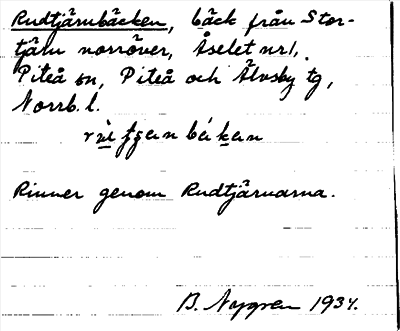 Rudtjärnbäcken, bäck från Stor-
tjärn norröver, Åselet nr 1,
Piteå sn, Piteå och Älvsby tg,
Norrb. l.
Rinner genom Rudtjärnarna.
B. Nygren 1934.